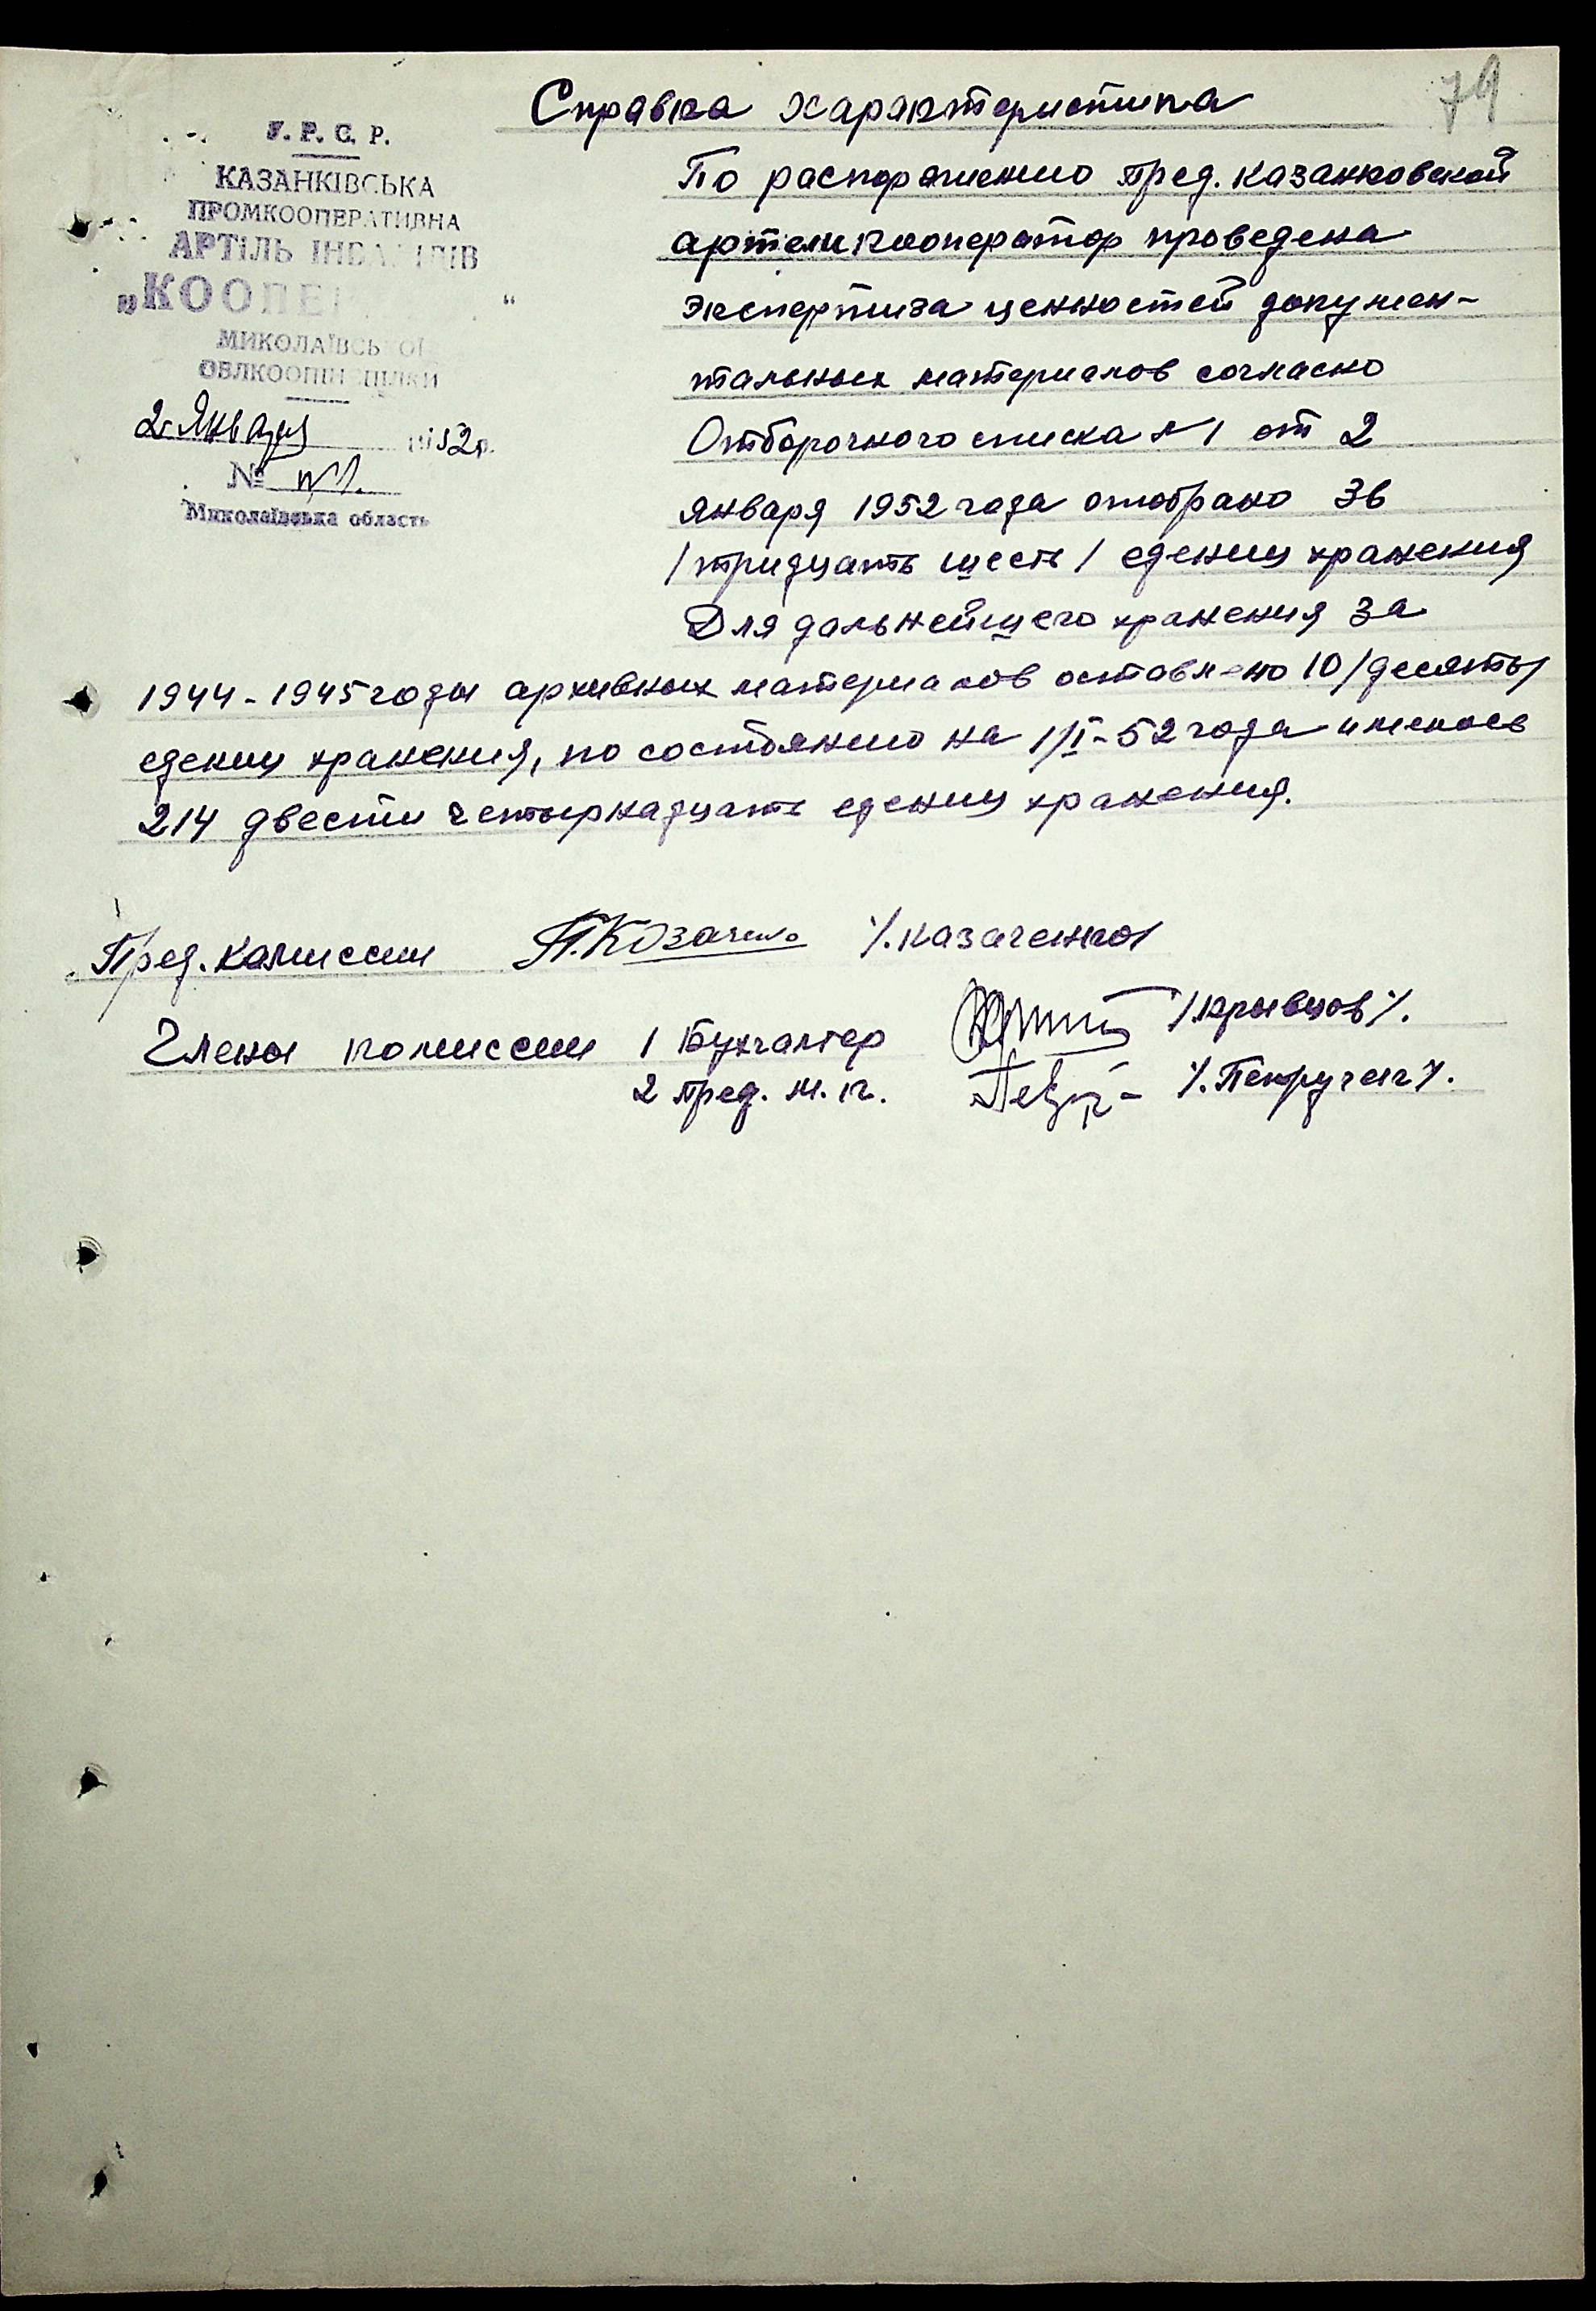 Справка характеристика
79
У. Р. С. Р.
КАЗАНКІВСЬКА
ПРОМКООПЕРАТИВНА
АРТІЛЬ ІНВАЛІДІВ
„КООПЕ “
МИКОЛАЇВСЬКОЇ
ОБЛКООПІНСПІЛКИ
2 Января 1952 р.
№ №1.
Миколаївська область
По распоряжению пред. казанковской
артели кооператор проведена
экспертиза ценностей докумен-
тальных материалов согласно
Отборочного списка №1 от 2
января 1952 года отобрано 36
/тридцать шесть/ едениц хранения
Для дальнейшего хранения за
1944-1945 годы архивных материалов оставлено 10/десять/
едениц хранения, по состоянию на 1/I-52 года имелось
214 двести четырнадцать едениц хранения.
Пред. Комиссии /.казаченко/
Члены комиссии 1 Бухгалтер /.крывцов/.
2 пред. м. к.